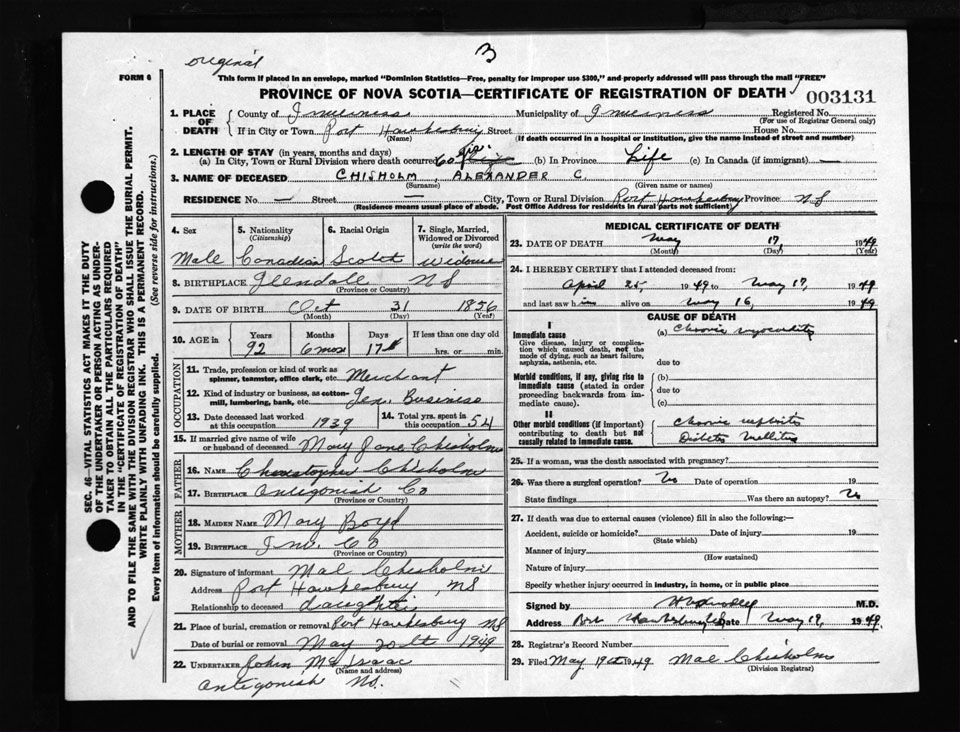 original
3
FORM 6
This form if placed in an envelope, marked "Dominion Statistics—Free, penalty for improper use $300," and properly addressed will pass through the mail "FREE"
PROVINCE OF NOVA SCOTIA—CERTIFICATE OF REGISTRATION OF DEATH
003131
1. PLACE OF DEATH
County of Inverness Municipality of Inverness Registered No.
(For use of Registrar General only)
If in City or Town Port Hawkesbury Street House No.
(Name) (If death occurred in a hospital or institution, give the name instead of street and number)
2. LENGTH OF STAY (in years, months and days)
(a) In City, Town or Rural Division where death occurred 60 (b) In Province Life (c) In Canada (if immigrant) —
3. NAME OF DECEASED CHISHOLM, ALEXANDER C.
(Surname) (Given name or names)
RESIDENCE No. — Street — City, Town or Rural Division Port Hawkesbury Province NS
(Residence means usual place of abode. Post Office Address for residents in rural parts not sufficient)
4. Sex
Male
5. Nationality
(Citizenship)
Canadian
6. Racial Origin
Scotch
7. Single, Married, Widowed or Divorced
(write the word)
8. BIRTHPLACE Glendale NS
(Province or Country)
9. DATE OF BIRTH Oct 31 1856
(Month) (Day) (Year)
10. AGE in Years Months Days If less than one day old
92 6 mos 17 hrs. or min.
OCCUPATION
11. Trade, profession or kind of work as spinner, teamster, office clerk, etc. Merchant
12. Kind of industry or business, as cotton-mill, lumbering, bank, etc. Gen. Business
13. Date deceased last worked at this occupation 1939
14. Total yrs. spent in this occupation 54
15. If married give name of wife or husband of deceased Mary Jane Chisholm
FATHER
16. NAME Christopher Chisholm
17. BIRTHPLACE Antigonish Co
(Province or Country)
MOTHER
18. MAIDEN NAME Mary Boyd
19. BIRTHPLACE Inv. Co
(Province or Country)
20. Signature of informant Mae Chisholm
Address Port Hawkesbury, NS
Relationship to deceased daughter
21. Place of burial, cremation or removal Port Hawkesbury NS
Date of burial or removal May 20th 1949
22. UNDERTAKER John McIsaac
(Name and address)
Antigonish NS.
MEDICAL CERTIFICATE OF DEATH
23. DATE OF DEATH May 17, 1949
(Month) (Day)
24. I HEREBY CERTIFY that I attended deceased from:
April 25, 1949 to May 17, 1949
and last saw him alive on May 16, 1949
CAUSE OF DEATH
I
Immediate cause
Give disease, injury or complication which caused death, not the mode of dying, such as heart failure, asphyxia, asthenia, etc.
(a) Chronic myocarditis
due to
Morbid conditions, if any, giving rise to immediate cause (stated in order proceeding backwards from immediate cause).
(b)
due to
(c)
II
Other morbid conditions (if important) contributing to death but not causally related to immediate cause.
Chronic nephritis
Diabetes Mellitus
25. If a woman, was the death associated with pregnancy?
26. Was there a surgical operation? No Date of operation 19
State findings Was there an autopsy? No
27. If death was due to external causes (violence) fill in also the following:—
Accident, suicide or homicide? Date of injury 19
(State which)
Manner of injury
(How sustained)
Nature of injury
Specify whether injury occurred in industry, in home, or in public place
Signed by M.D.
Address Port Hawkesbury Date May 19, 1949
28. Registrar's Record Number
29. Filed May 19 1949 Mae Chisholm
(Division Registrar)
SEC. 46—VITAL STATISTICS ACT MAKES IT THE DUTY OF THE UNDERTAKER OR PERSON ACTING AS UNDERTAKER TO OBTAIN ALL THE PARTICULARS REQUIRED IN THE "CERTIFICATE OF REGISTRATION OF DEATH" AND TO FILE THE SAME WITH THE DIVISION REGISTRAR WHO SHALL ISSUE THE BURIAL PERMIT.
WRITE PLAINLY WITH UNFADING INK. THIS IS A PERMANENT RECORD.
Every item of information should be carefully supplied. (See reverse side for instructions.)